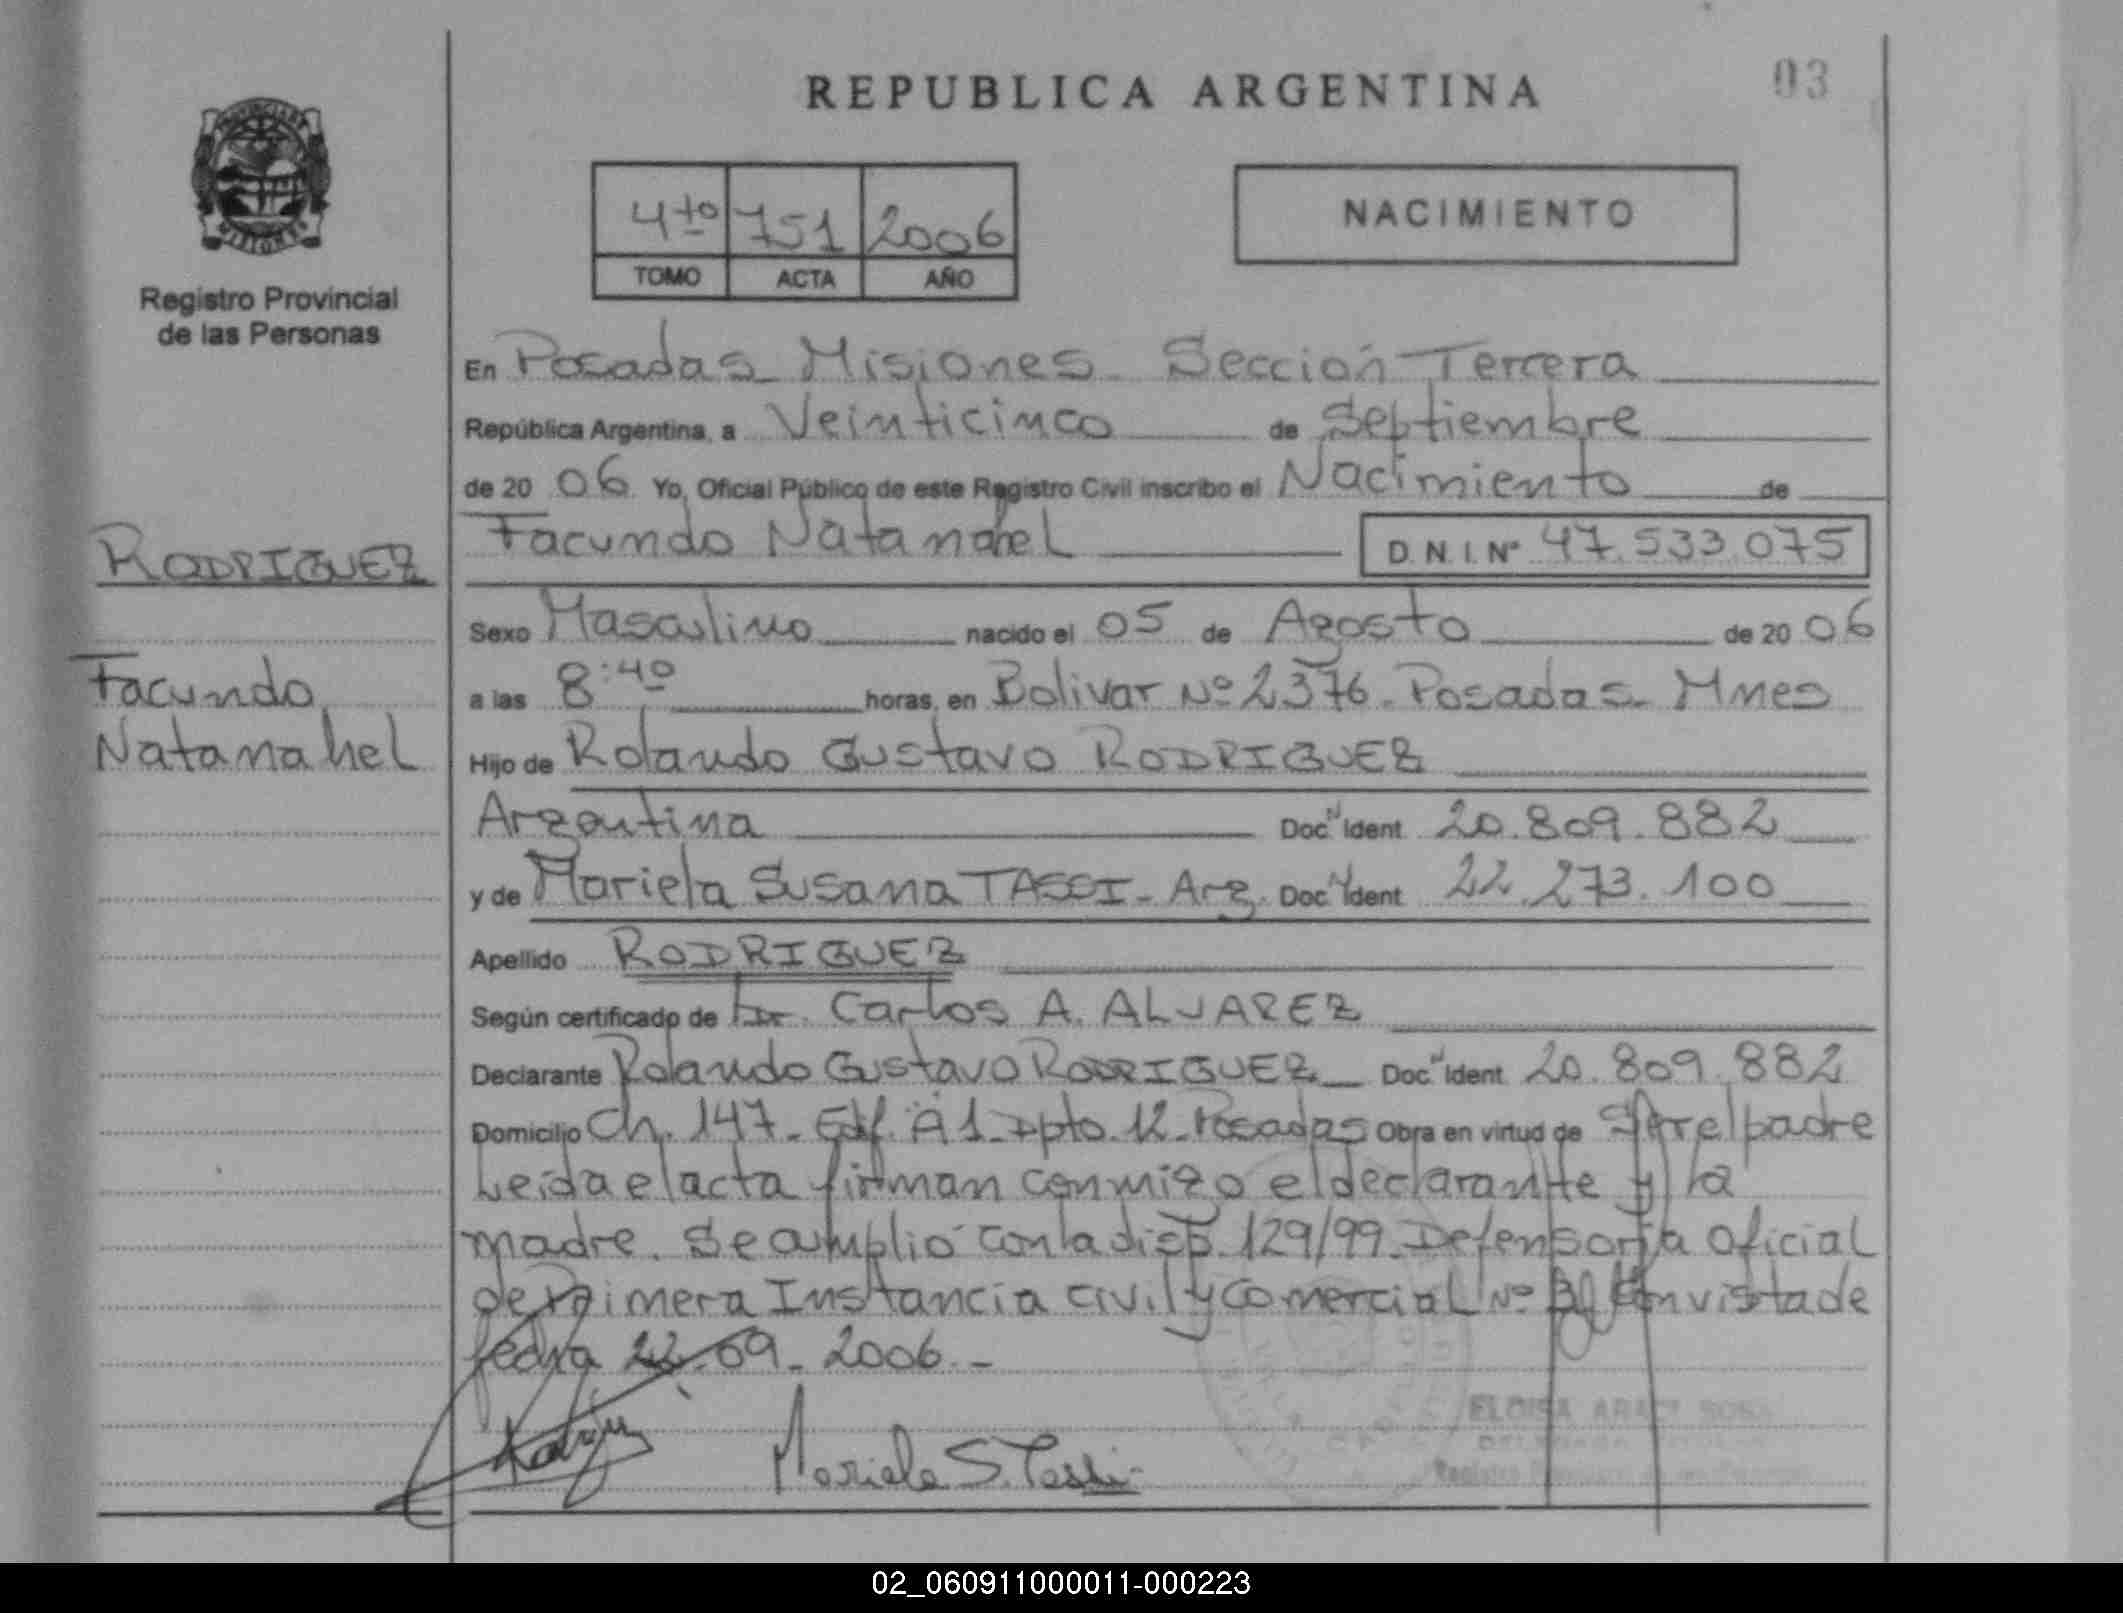 REPUBLICA ARGENTINA
03
PROVINCIA DE
MISIONES
Registro Provincial
de las Personas
4to 751 2006
TOMO ACTA AÑO
NACIMIENTO
En Posadas Misiones Sección Tercera
República Argentina, a Veinticinco de Septiembre
de 20 06 Yo, Oficial Público de este Registro Civil inscribo el Nacimiento de
Facundo Natanahel D.N.I. Nº 47.533.075
RODRIGUEZ
Facundo
Natanahel
Sexo Masculino nacido el 05 de Agosto de 20 06
a las 8:40 horas, en Bolivar Nº 2376. Posadas. Mnes
Hijo de Rolando Gustavo RODRIGUEZ
Argentina Doc. Ident 20.809.882
y de Mariela Susana TASSI - Arg. Doc. Ident 22.273.100
Apellido RODRIGUEZ
Según certificado de Dr. Carlos A. ALVAREZ
Declarante Rolando Gustavo RODRIGUEZ Doc. Ident 20.809.882
Domicilio Ch. 147 - Edf. A1 - Dpto. 12 - Posadas Obra en virtud de Ser el padre
Leída el acta firman conmigo el declarante y la
madre. Se amplió con la disp. 129/99. Defensoria Oficial
de Primera Instancia civil y Comercial Nº con vista de
fecha 22.09.2006.-
Mariela S. Tassi
ELOISA
02_060911000011-000223